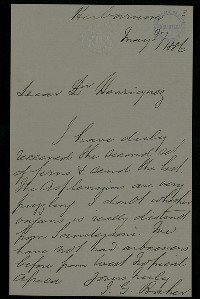 Herbarium
May 7/1886
Dear Dr Henriquez
I have duly
received the second set
of ferns & send the list.
The Aspleniums are very
puzzling. I doubt whether
is really distinct
from We
have not had
before from West tropical
Africa Yours truly
J. G. Baker